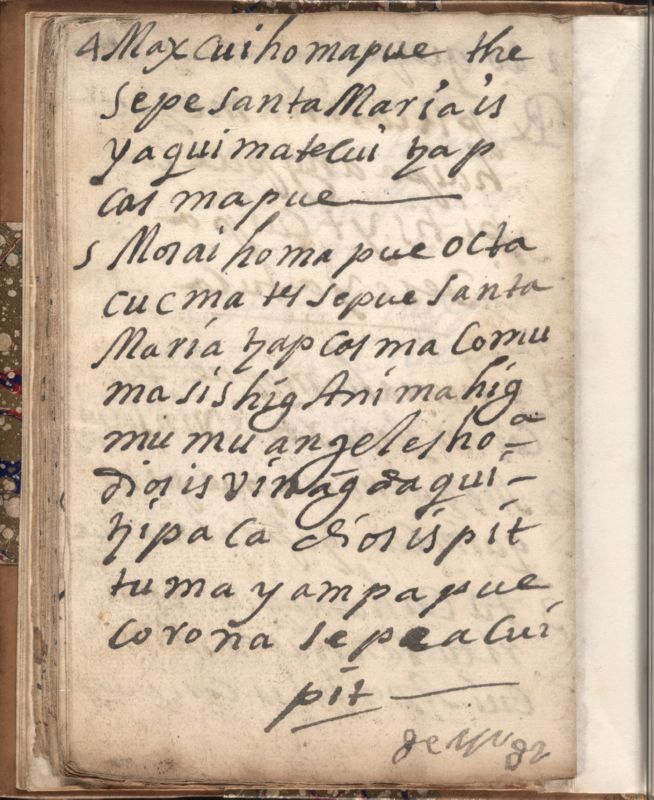 4 Max cui homapue the
Sepe Santa María is
yaquimatecui hap
cosmapue
5 Morai homapue octa
cucmates sepue Santa
María hap cosma Comu
masis hig Anima hig
mumu angeles ho
dios is vinag
hipaca dios is pit
tuma yampapue
Corona Sepe a cui
pit